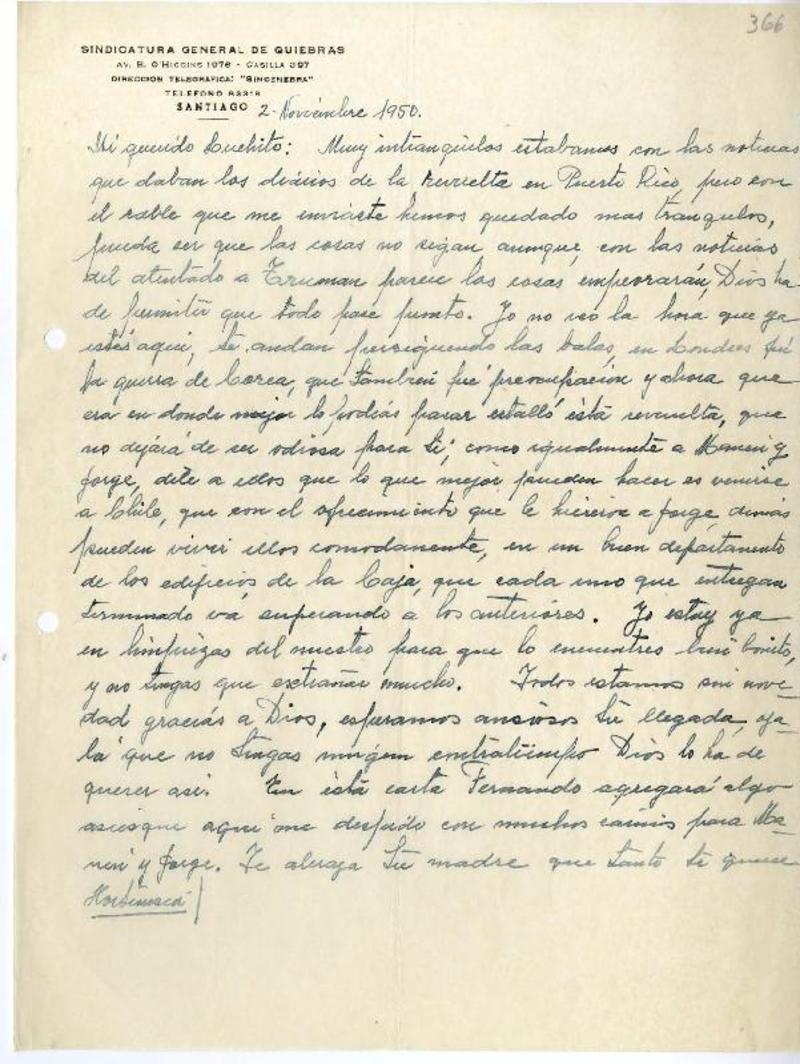 366
SINDICATURA GENERAL DE QUIEBRAS
AV. B. O'HIGGINS 1076 - CASILLA 397
DIRECCION TELEGRAFICA: "SINGENEBRA"
TELEFONO
SANTIAGO 2-Noviembre 1950.
Mi querido Luchito: Muy intranquilos estabamos con las noticias
que daban los diários de la revuelta en Puerto Rico, pero con
el cable que me enviáste hemos quedado mas tranquilos,
pueda ser que las cosas no sigan aunque, con las noticias
del atentado a Truman parece las cosas empeorarán, Dios ha
de permitir que todo pase pronto. Yo no veo la hora que ya
estés aquí, te andan persiguiendo las balas, en Londres fué
la guerra de Corea, que también fué preocupación y ahora que
era en donde mejor lo podías pasar estalló ésta revuelta, que
no dejará de ser odiosa para tí, como igualmente a Manen y
Jorge, dile a ellos que lo que mejor pueden hacer es venirse
a Chile, que con el ofrecimiento que le hicieron a Jorge, demás
pueden vivir ellos comodamente, en un buen departamento
de los edificios de la Caja, que cada uno que entregan
terminado vá superando a los anteriores. Yo estoy ya
en limpiezas del nuestro para que lo encuentres bien bonito,
y no tengas que extrañar mucho. Todos estamos sin nove-
dad gracias a Dios, esperamos ansiosos tu llegada, oja-
lá que no tengas ningun contratiempo Dios lo ha de
querer así. En ésta carta Fernando agregará algo
asiesque aquí me despido con muchos cariños para Ma-
nen y Jorge. Te abraza tu madre que tanto te quiere
Hortensia